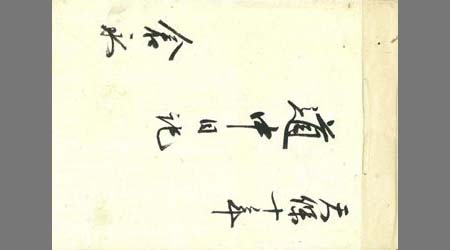 天保十年
道中日記